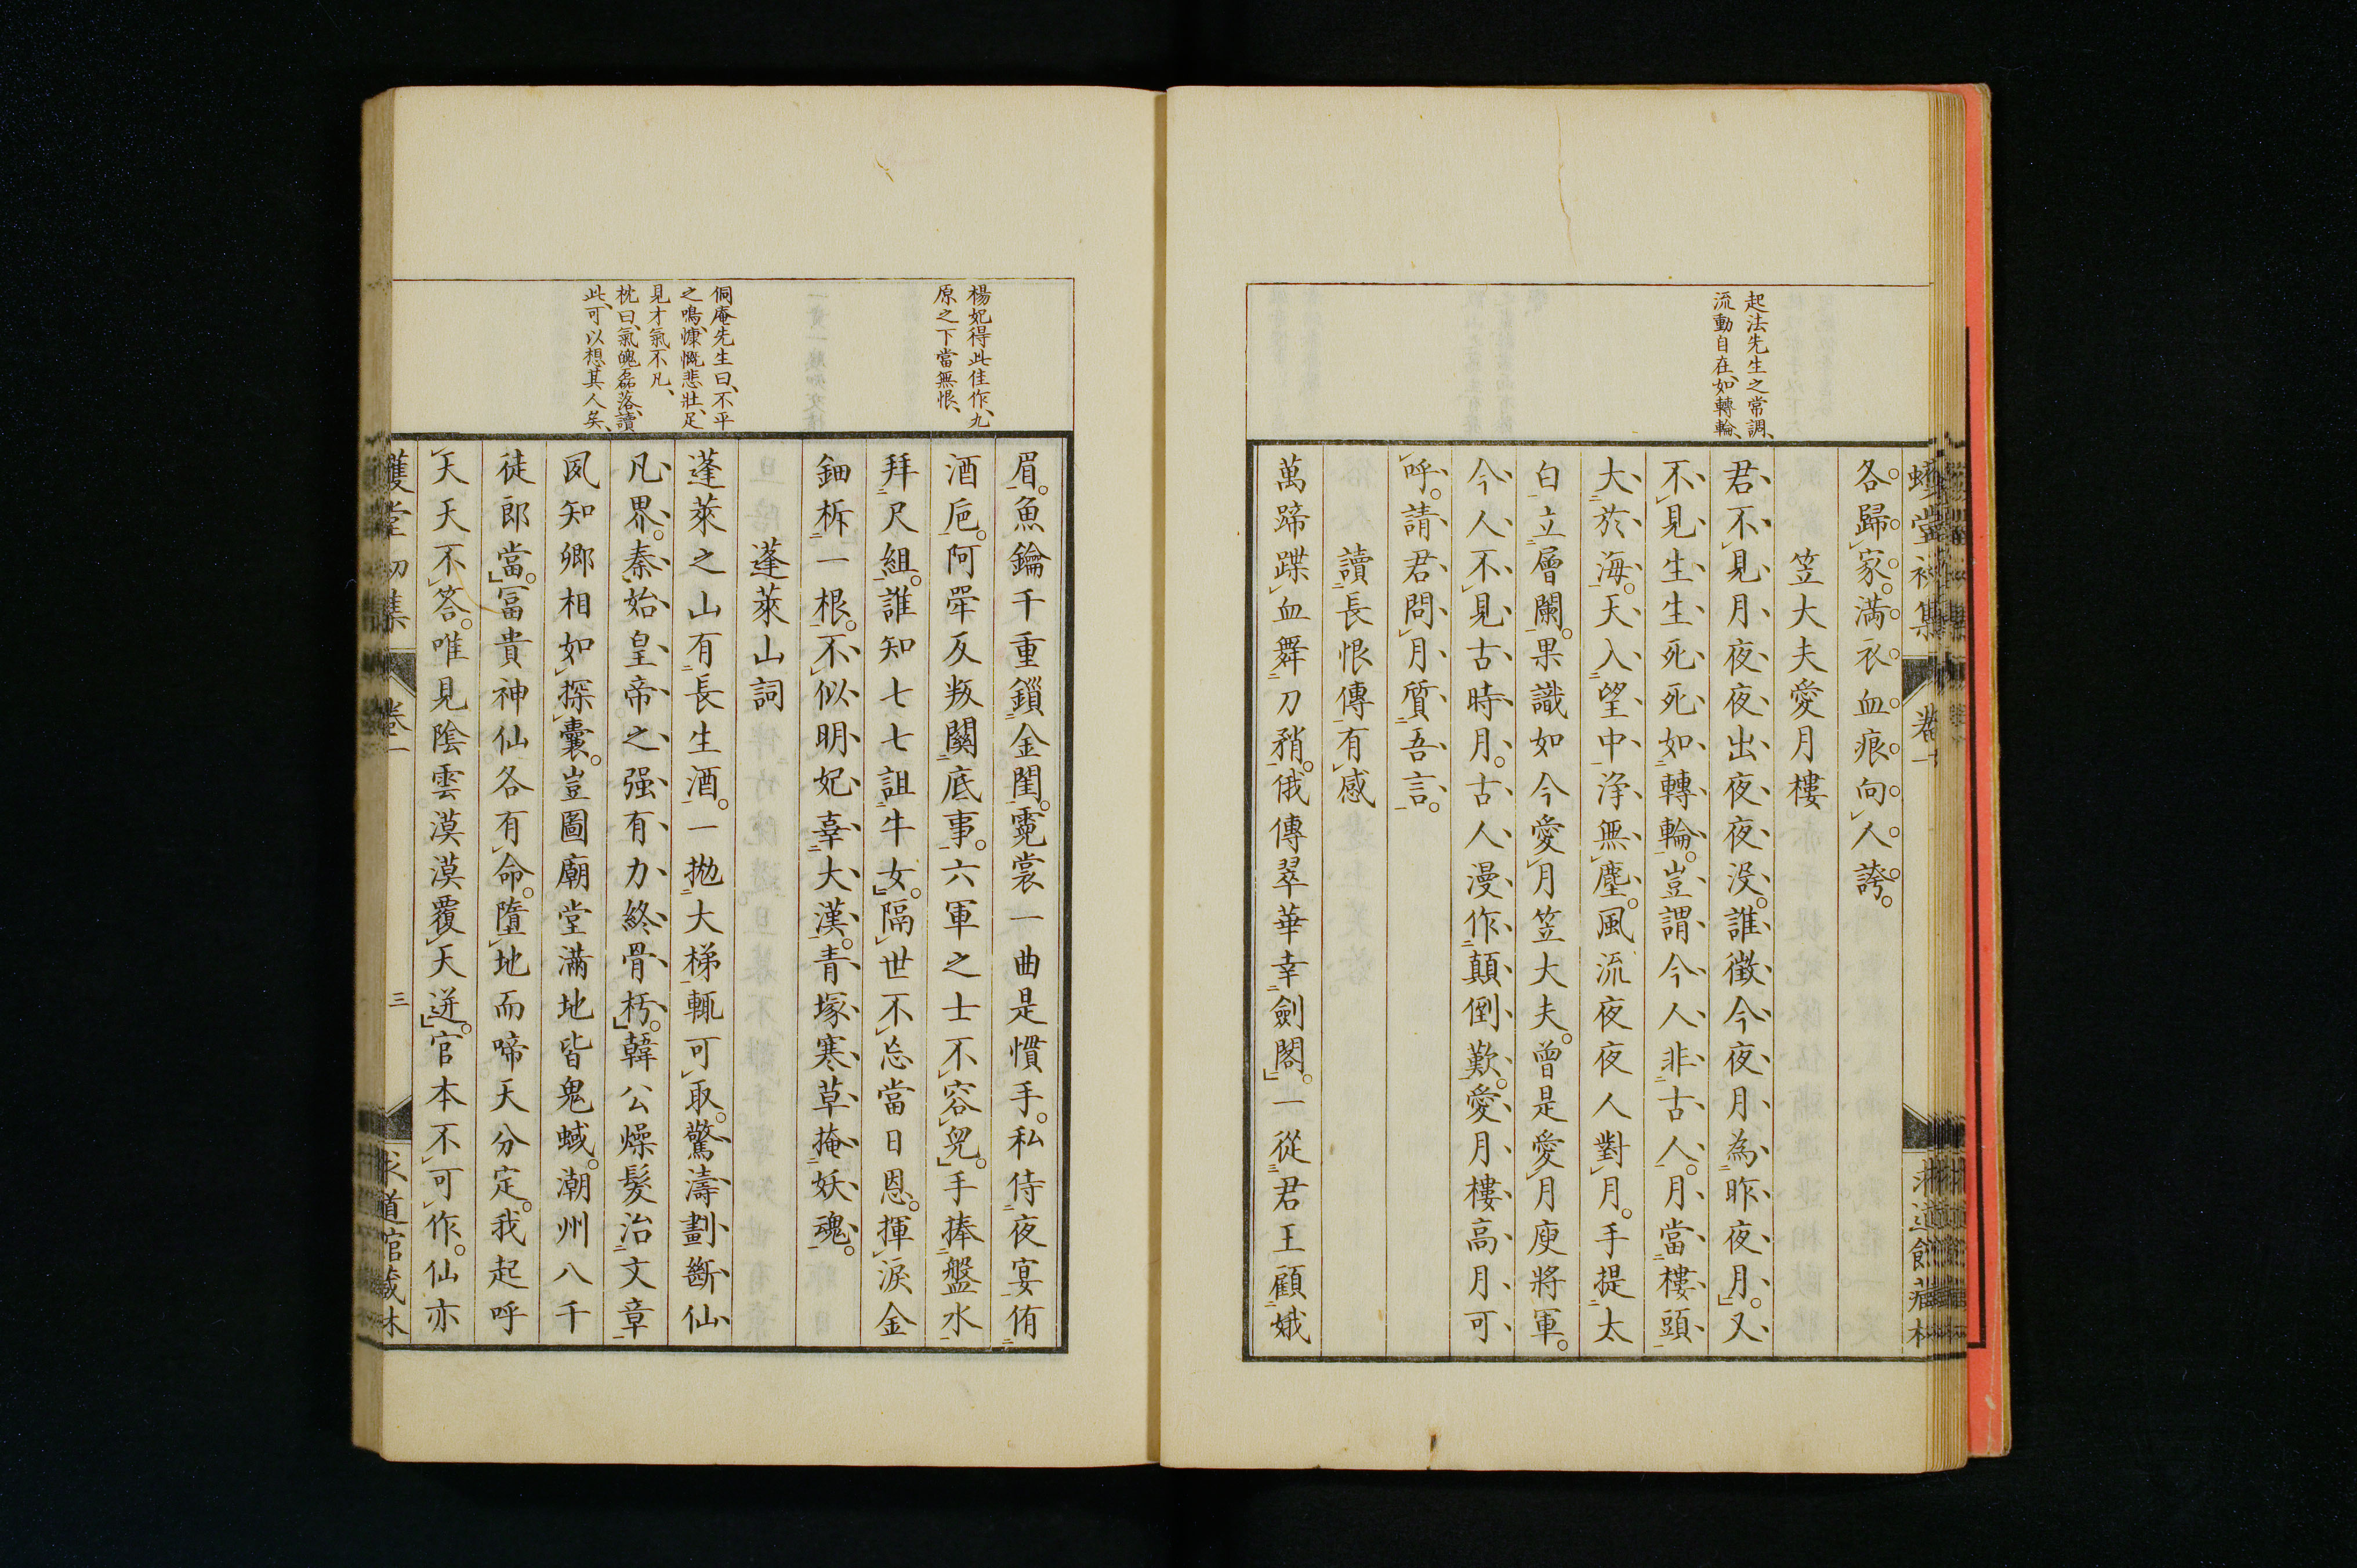 起法先生之常調、
流動自在、如轉輪、
各歸家。滿衣血痕向人誇。
笠大夫愛月樓
君不見月夜夜出夜夜沒。誰徵今夜月為昨夜月。又
不見生生死死如轉輪。豈謂今人非古人。月當樓頭
大於海。天入望中淨無塵。風流夜夜人對月。手提太
白立層闌。果識如今愛月笠大夫。曾是愛月庾將軍。
今人不見古時月。古人漫作顛倒歎。愛月樓高月可
呼。請君問月質吾言。
讀長恨傳有感
萬蹄蹀血舞刀矟。俄傳翠華幸劍閣。一從君王顧娥
楊妃得此佳作、九
原之下當無恨、
侗庵先生曰、不平
之鳴、慷慨悲壯、足
見才氣不凡、
枕曰、氣魄磊落、讀
此、可以想其人矣、
眉。魚鑰千重鎖金閨。霓裳一曲是慣手。私侍夜宴侑
酒卮。阿犖反叛關底事。六軍之士不容兒。手捧盤水
拜尺組。誰知七七詛牛女。隔世不忘當日恩。揮淚金
鈿柝一根。不似明妃辜大漢。青塚寒草掩妖魂。
蓬萊山詞
蓬萊之山有長生酒。一拋大梯輒可取。驚濤劃斷仙
凡界。秦始皇帝之强有力終骨朽。韓公燥髮治文章
夙知卿相如探囊。豈圖廟堂滿地皆鬼蜮。潮州八千
徒郎當。冨貴神仙各有命。墮地而啼天分定。我起呼
天天不答。唯見陰雲漠漠覆天逬。官本不可作。仙亦
卷一
三